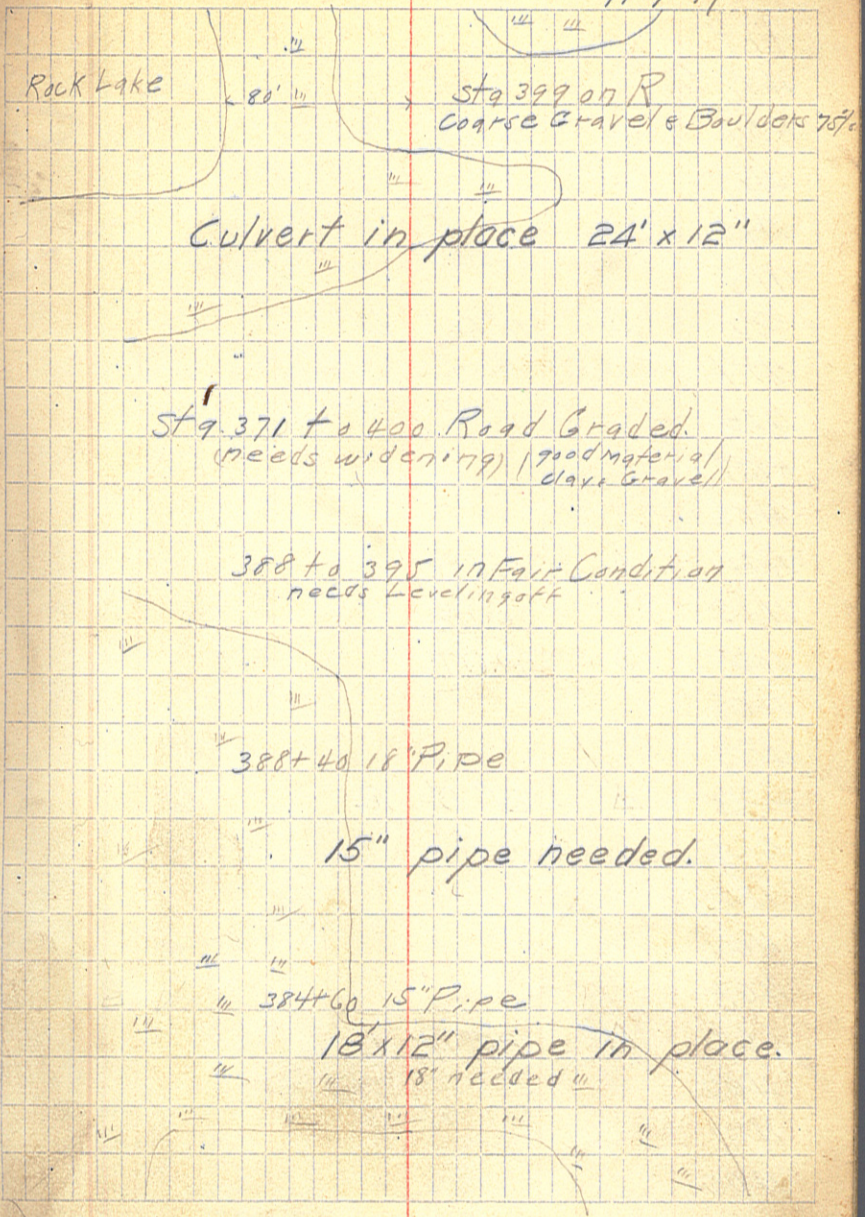 Rock Lake
80'
Sta 399 on R
Coarse Gravel & Boulders
Culvert in place 24' x 12"
Sta. 371 to 400 Road Graded.
(needs widening) (good material
Clay & Gravel)
388 to 395 in Fair Condition
needs Leveling off
388+40 18" Pipe
15" pipe needed.
384+60 15" Pipe
18'x12" pipe in place.
18" needed